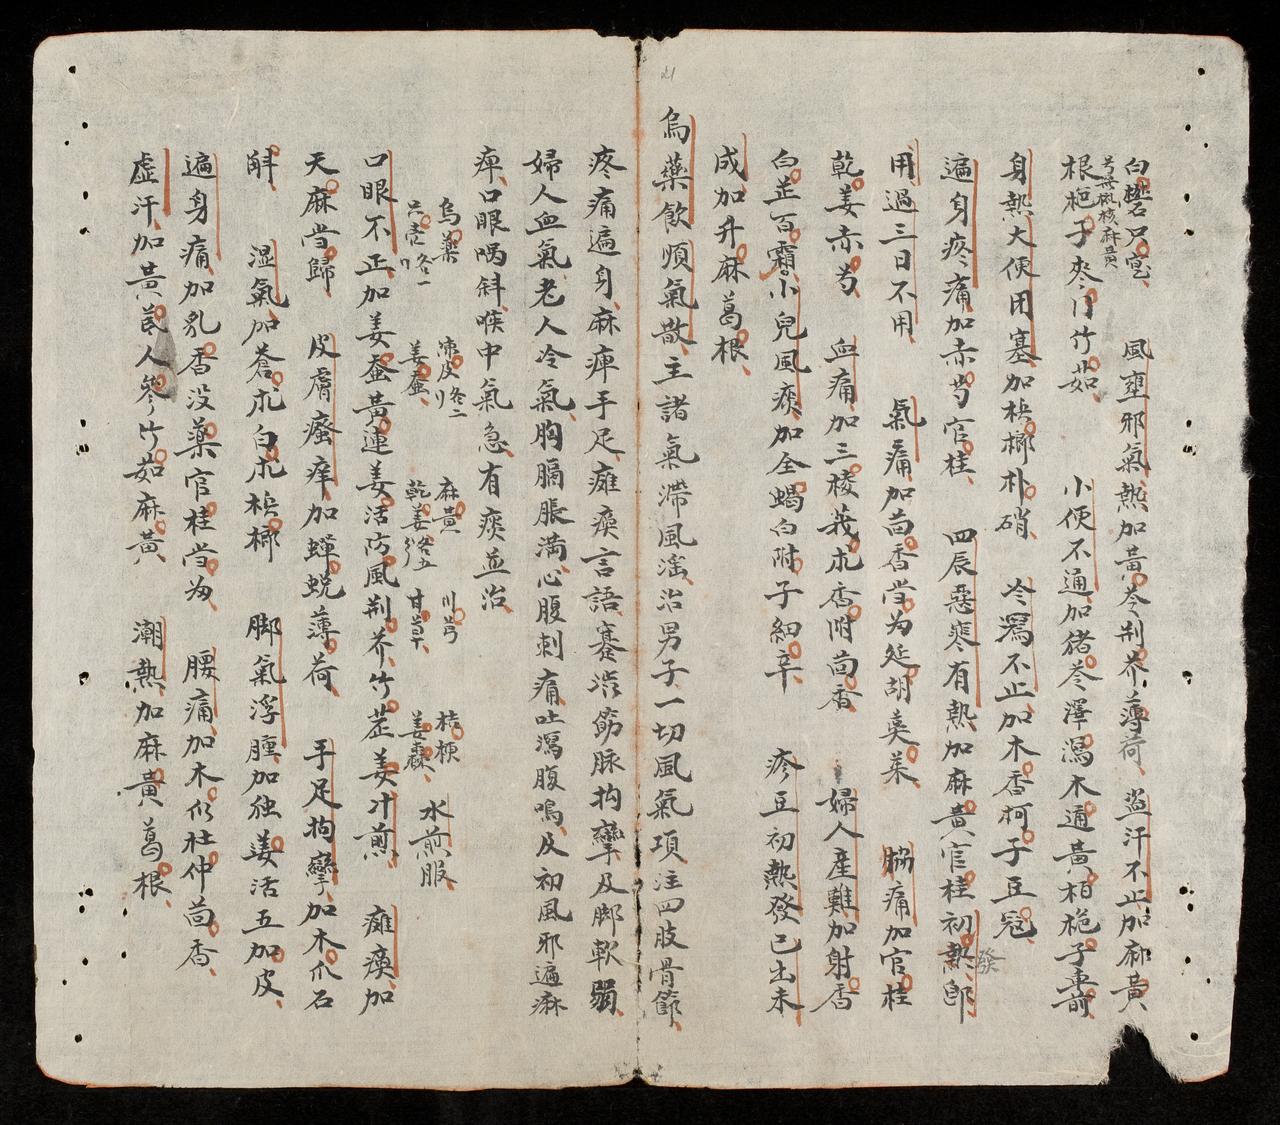 白礬石只宽　風壅邪氣熱加黃芩荆芥薄荷　盗汗不止加麻黃
根桅子麥門竹茹　小便不通加猪苓澤瀉木通黃柏桅子車前
身熱大便閉塞加梹榔朴硝　冷瀉不止加木香柯子豆冦
遍身疼痛加赤芍官桂　四辰惡寒有熱加麻黃官桂初熱發即
用過三日不用　氣痛加茴香当为延胡莫茱　脇痛加官桂
乾姜赤芍　血痛加三棱莪朮香附茴香　婦人産難加射香
白芷百霜小兒風痰加全蝎白附子細辛　疹豆初熱發已出未
成加升麻葛根
烏藥飲順氣散主諸氣滯風滛治男子一切風氣項注四肢骨節
疼痛遍身麻痺手足癱瘓言語蹇澁筋脉拘攣及脚軟弱
婦人血氣老人冷氣胸膈脹満心腹刺痛吐瀉腹鳴及初風邪遍麻
痺口眼喎斜喉中氣急有痰並治
烏藥　陳皮各二　麻黄　川芎　桔梗
只壳各一　姜蚕　乾姜各五　甘草　姜棗　水煎服
口眼不正加姜蚕黃連姜活防風荆芥竹茊姜汁煎　癱瘓加
天麻当歸　皮膚瘙痒加蟬蛻薄荷　手足拘攣加木爪石
斛　湿氣加蒼朮白朮梹榔　脚氣浮腫加独姜活五加皮
遍身痛加乳香没藥官桂当为　腰痛加木似杜仲茴香
虚汗加黃芪人參竹茹麻黃　潮熱加麻黃葛根